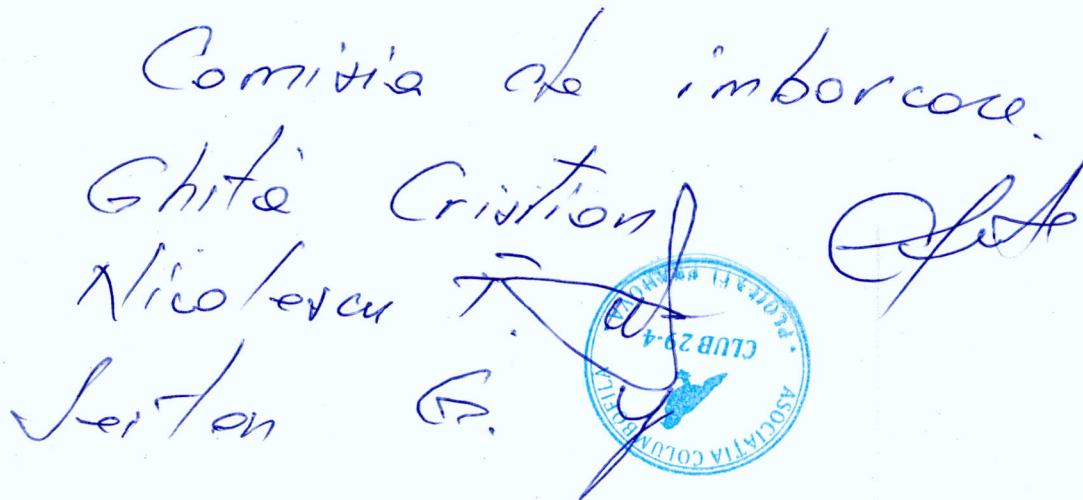 Comisia de imborcare.
Ghită Cristian
Nicolescu T.
Seitan G.
ASOCIAȚIA COLUMBOFILA
CLUB 29-4
PLOIESTI PRAHOVA